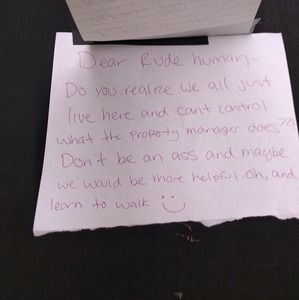 Dear Rude human,-
Do you realize we all just
live here and cant control
what the property manager does?!
Don't be an ass and maybe
we would be more helpful. Oh, and
learn to walk